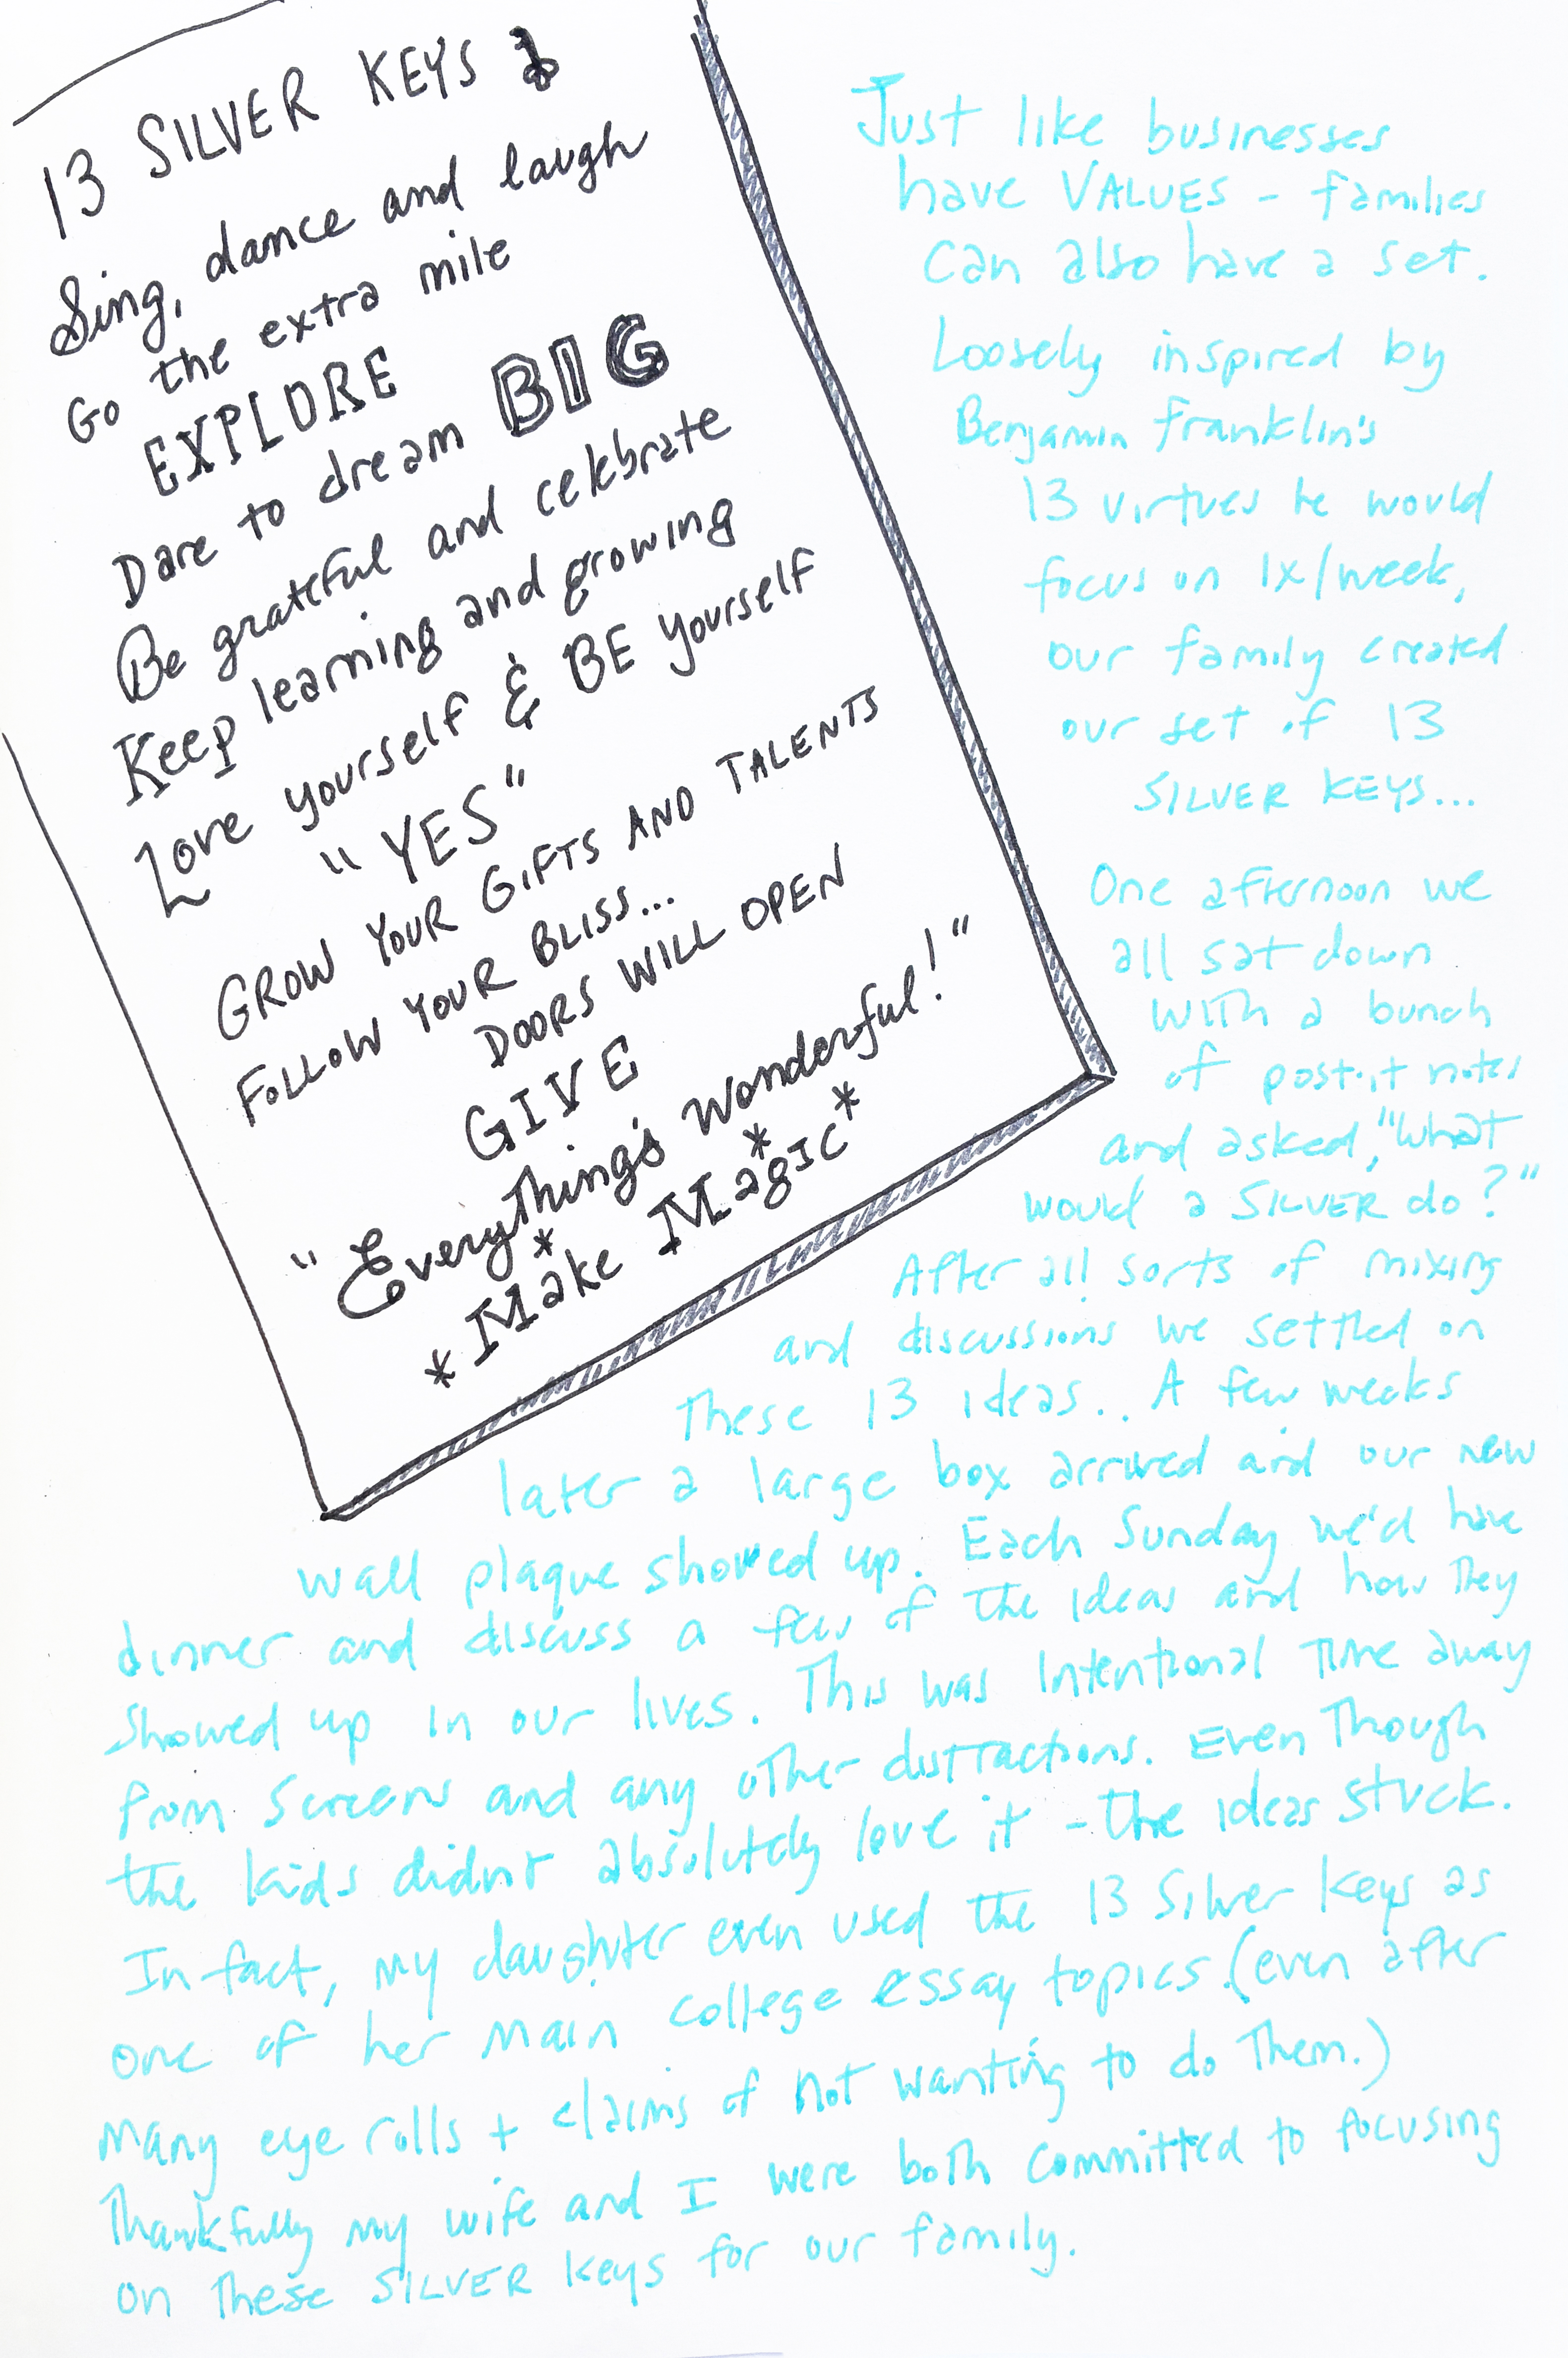 13 SILVER KEYS
Sing, dance and laugh
Go the extra mile
EXPLORE
Dare to dream BIG
Be grateful and celebrate
Keep learning and growing
Love yourself & BE yourself
"YES"
GROW YOUR GIFTS AND TALENTS
FOLLOW YOUR BLISS...
DOORS WILL OPEN
GIVE
"Everything's Wonderful!"
*Make* Magic*
Just like businesses
have VALUES - families
can also have a set.
Loosely inspired by
Benjamin Franklin's
13 virtues he would
focus on 1x/week,
our family created
our set of 13
SILVER KEYS...
One afternoon we
all sat down
with a bunch
of post-it notes
and asked, "What
would a SILVER do?"
After all sorts of mixing
and discussions we settled on
These 13 ideas.. A few weeks
later a large box arrived and our new
wall plaque showed up. Each Sunday we'd have
dinner and discuss a few of the ideas and how they
showed up in our lives. This was Intentional Time away
from Screens and any other distractions. Even Though
the kids didn't absolutely love it - the ideas stuck.
In fact, my daughter even used the 13 Silver Keys as
one of her main college essay topics. (even after
many eye rolls + claims of not wanting to do Them.)
Thankfully my wife and I were both committed to focusing
on These SILVER Keys for our family.